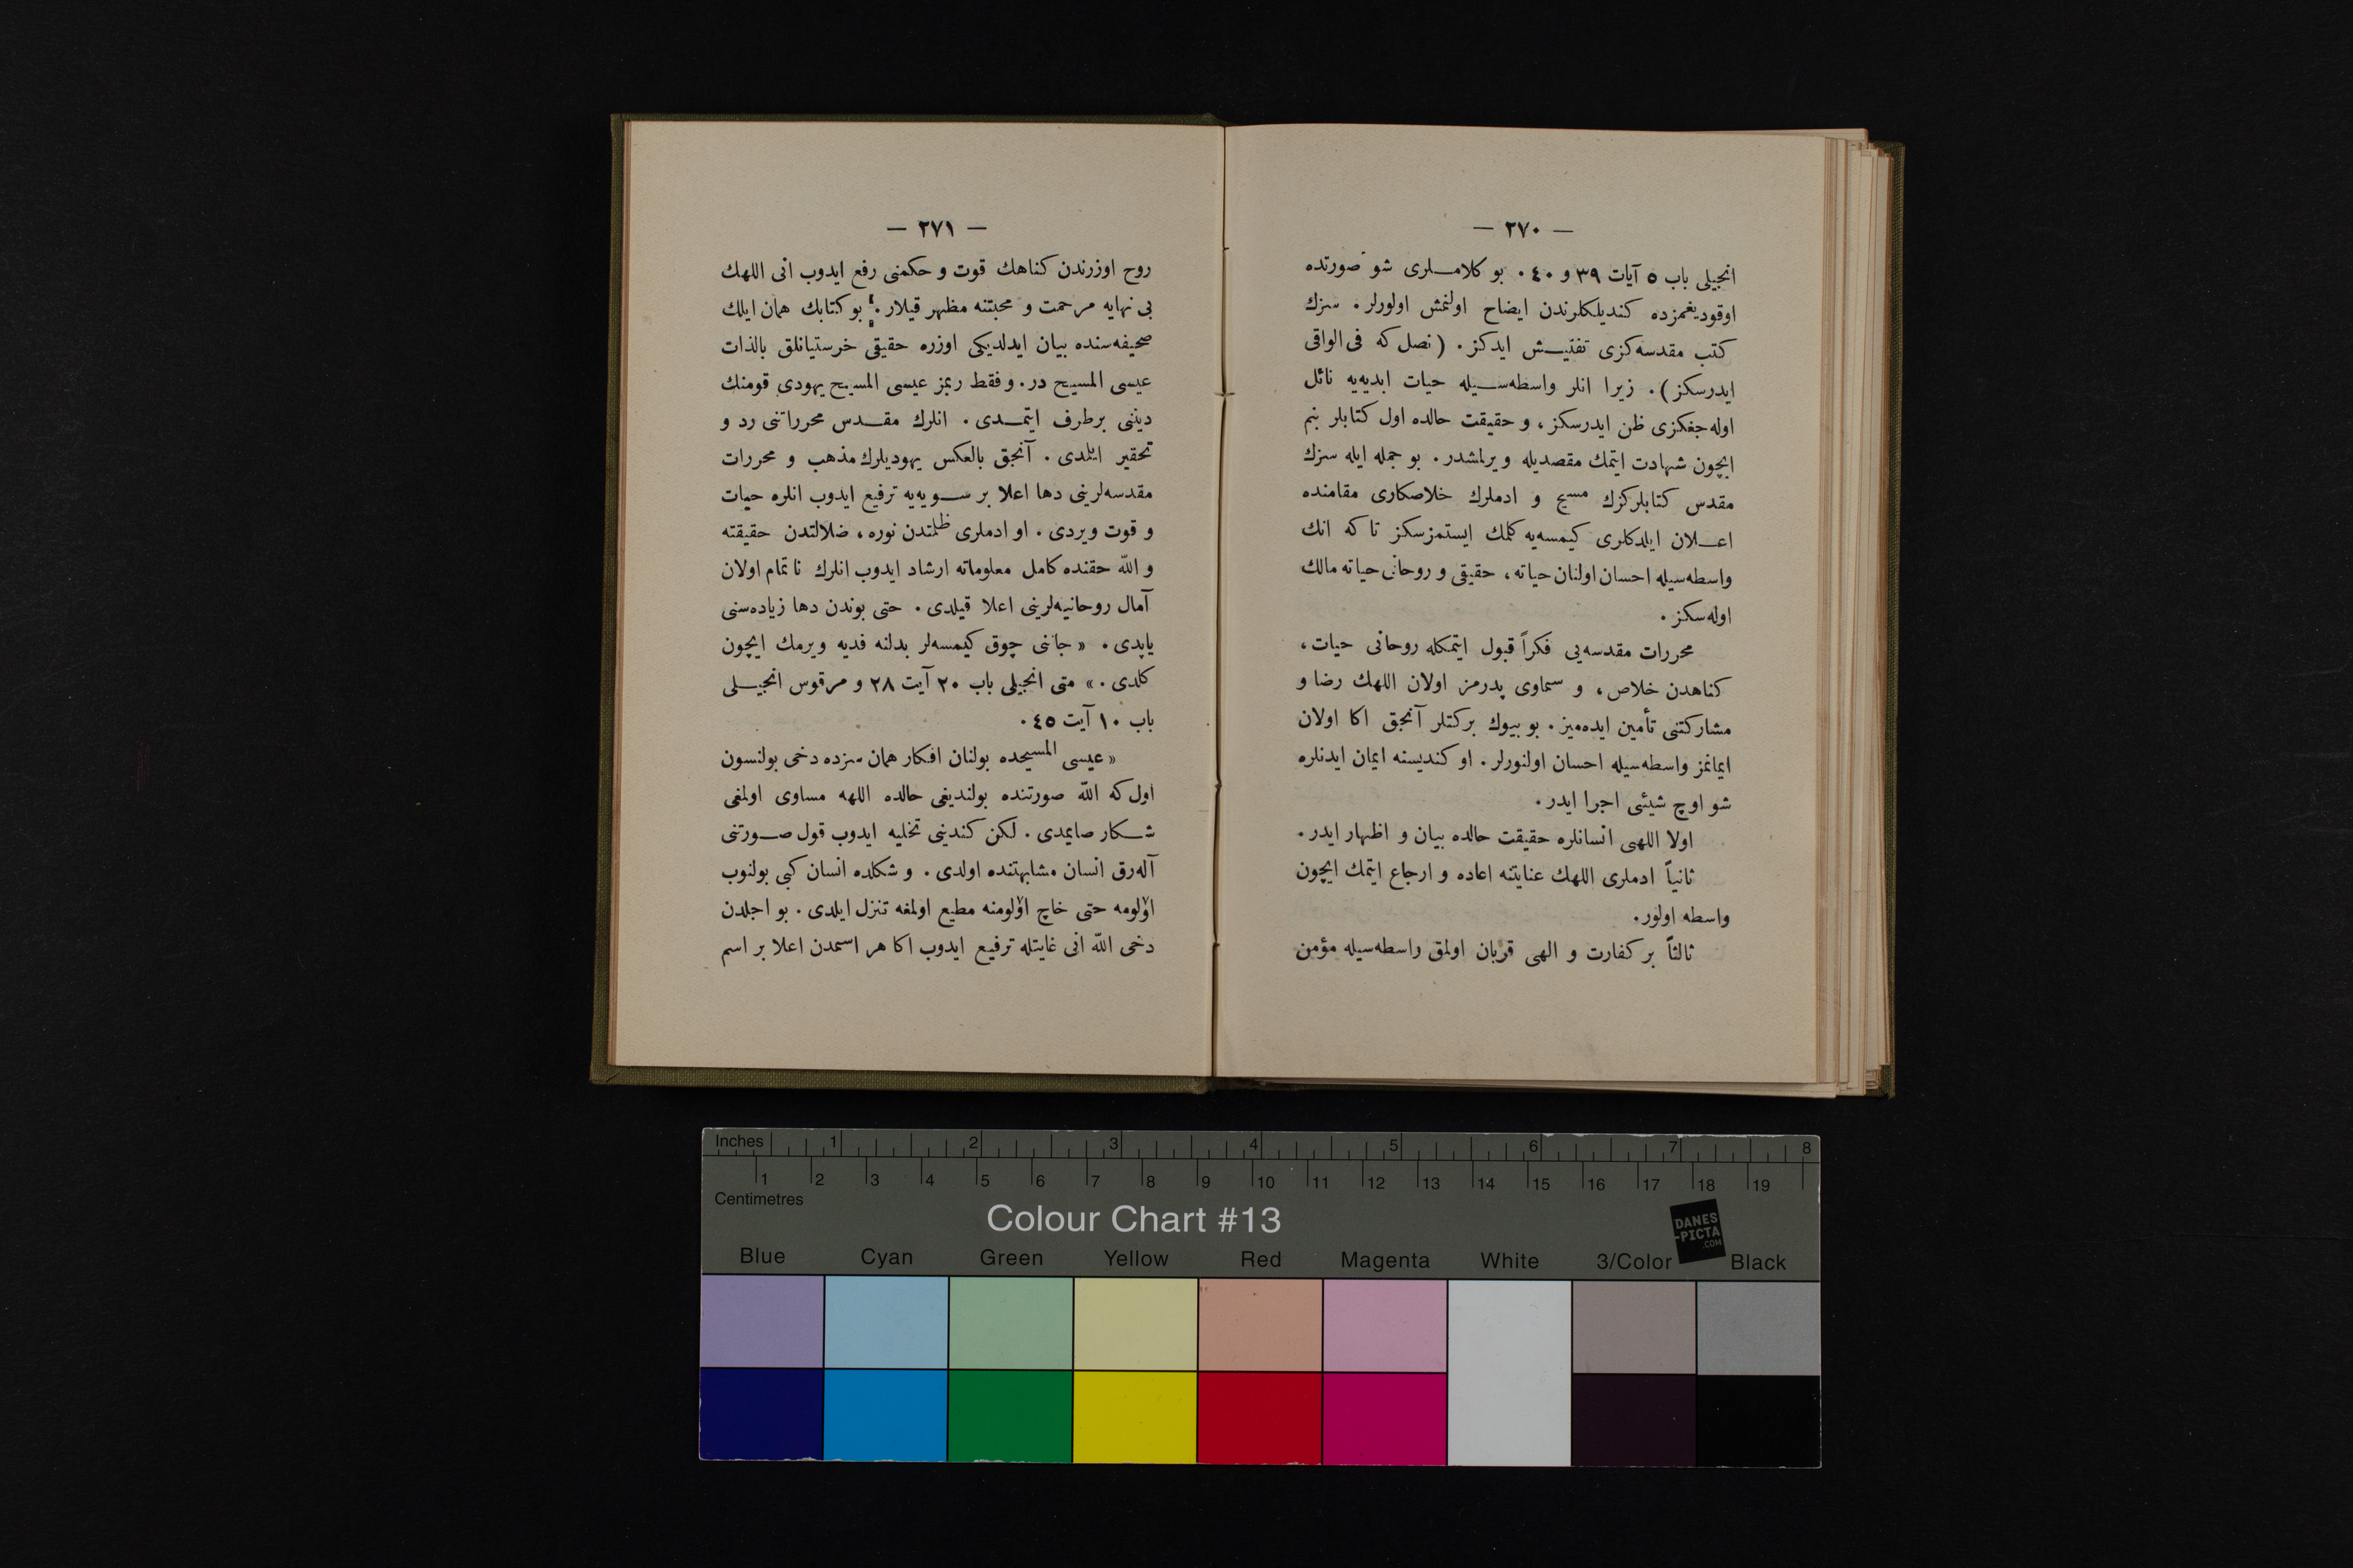 — ٢٧٠ —
انجیلی باب ٥ آیات ٣٩ و ٤٠ . بو کلاملری شو صورتده
اوقودیغمزده کندیلکلرندن ایضاح اولنمش اولورلر . سزك
کتب مقدسه‌کزی تفتیش ایدکز . ( نصل که فی الواقی
ایدرسکز ) . زیرا انلر واسطه‌سیله حیات ابدیه‌یه نائل
اوله‌جغکزی ظن ایدرسکز ، و حقیقت حالده اول کتابلر بنم
ایچون شهادت ایتمك مقصدیله ویرلمشدر . بو جمله ایله سزك
مقدس کتابلرکزك مسیح و ادملرك خلاصکاری مقامنده
اعلان ایلدکلری کیمسه‌یه کلمك ایستمزسکز تا که انك
واسطه‌سیله احسان اولنان حیاته ، حقیقی و روحانی حیاته مالك
اوله‌سکز .
محررات مقدسه‌یی فکراً قبول ایتمکله روحانی حیات ،
کناهدن خلاص ، و سماوی پدرمز اولان اللهك رضا و
مشارکتنی تأمین ایده‌میز . بو بیوك برکتلر آنجق اکا اولان
ایمانمز واسطه‌سیله احسان اولنورلر . او کندیسنه ایمان ایدنلره
شو اوچ شیئی اجرا ایدر .
اولا اللهی انسانلره حقیقت حالده بیان و اظهار ایدر .
ثانیاً ادملری اللهك عنایتنه اعاده و ارجاع ایتمك ایچون
واسطه اولور .
ثالثاً بر کفارت و الهی قربان اولمق راسطه‌سیله مؤمن
— ٢٧١ —
روح اوزرندن کناهك قوت و حکمنی رفع ایدوب انی اللهك
بی نهایه مرحمت و محبتنه مظهر قیلار . بو کتابك همان ایلك
صحیفه‌سنده بیان ایدلدیکی اوزره حقیقی خرستیانلق بالذات
عیسی المسیح در . و فقط ربمز عیسی المسیح یهودی قومنك
دیننی برطرف ایتمدی . انلرك مقدس محرراتنی رد و
تحقیر ایلدی . آنجق بالعکس یهودیلرك مذهب و محررات
مقدسه‌لرینی دها اعلا بر سویه‌یه ترفیع ایدوب انلره حیات
و قوت ویردی . او ادملری ظلمتدن نوره ، ضلالتدن حقیقته
و اللّٰه حقنده کامل معلوماته ارشاد ایدوب انلرك ناتمام اولان
آمال روحانیه‌لرینی اعلا قیلدی . حتی بوندن دها زیاده‌سنی
یاپدی . « جاننی چوق کیمسه‌لر بدلنه فدیه ویرمك ایچون
کلدی . » متی انجیلی باب ٢٠ آیت ٢٨ و مرقوس انجیلی
باب ١٠ آیت ٤٥ .
« عیسی المسیحده بولنان افکار همان سزده دخی بولنسون
اول که اللّٰه صورتنده بولندیغی حالده اللهه مساوی اولمغی
شکار صایمدی . لکن کندینی تخلیه ایدوب قول صورتنی
آله‌رق انسان مشابهتنده اولدی . و شکلده انسان کبی بولنوب
اؤلومه حتی خاچ اؤلومنه مطیع اولمغه تنزل ایلدی . بو اجلدن
دخی اللّٰه انی غایتله ترفیع ایدوب اکا هر اسمدن اعلا بر اسم
Inches 1 2 3 4 5 6 7 8
1 2 3 4 5 6 7 8 9 10 11 12 13 14 15 16 17 18 19
Centimetres
Colour Chart #13
DANES
-PICTA
.COM
Blue Cyan Green Yellow Red Magenta White 3/Color Black